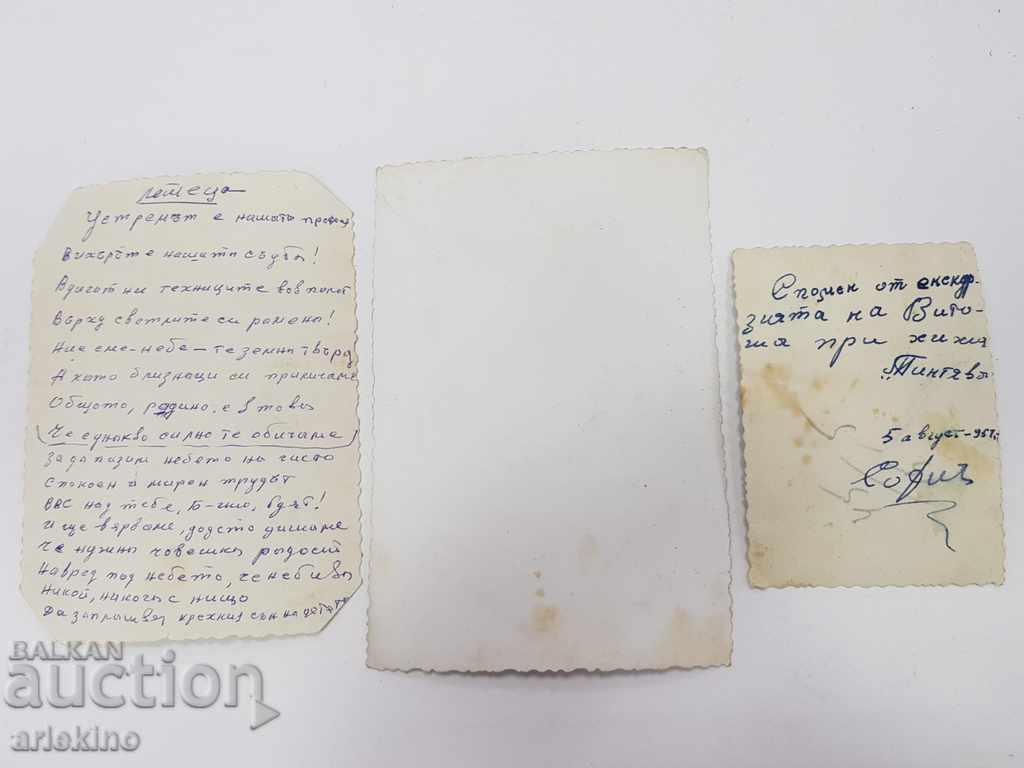 Летеца
Устремът е нашата
Вихърът е нашата съдба!
Вдигат ни техниците в полет
Върху светлите си рамена!
Ние сме – небе – те земна твърд
А като близнаци си приличаме
Общото, родино, е в това
Че еднакво силно те обичаме
За да пазим небето ти чисто
Спокоен и мирен трудът
над тебе, бдят!
И ще вярваме, додето дишаме
Че нужна човешка радост
Навред под небето, че не бива
Никой, никога с нищо
Да заплашва крехкия сън на децата
Спомен от екскур-
зията на Вито-
ша при хижа
"Тинтява"
5 август – 957 г.
София
BALKAN
auction
arlekino